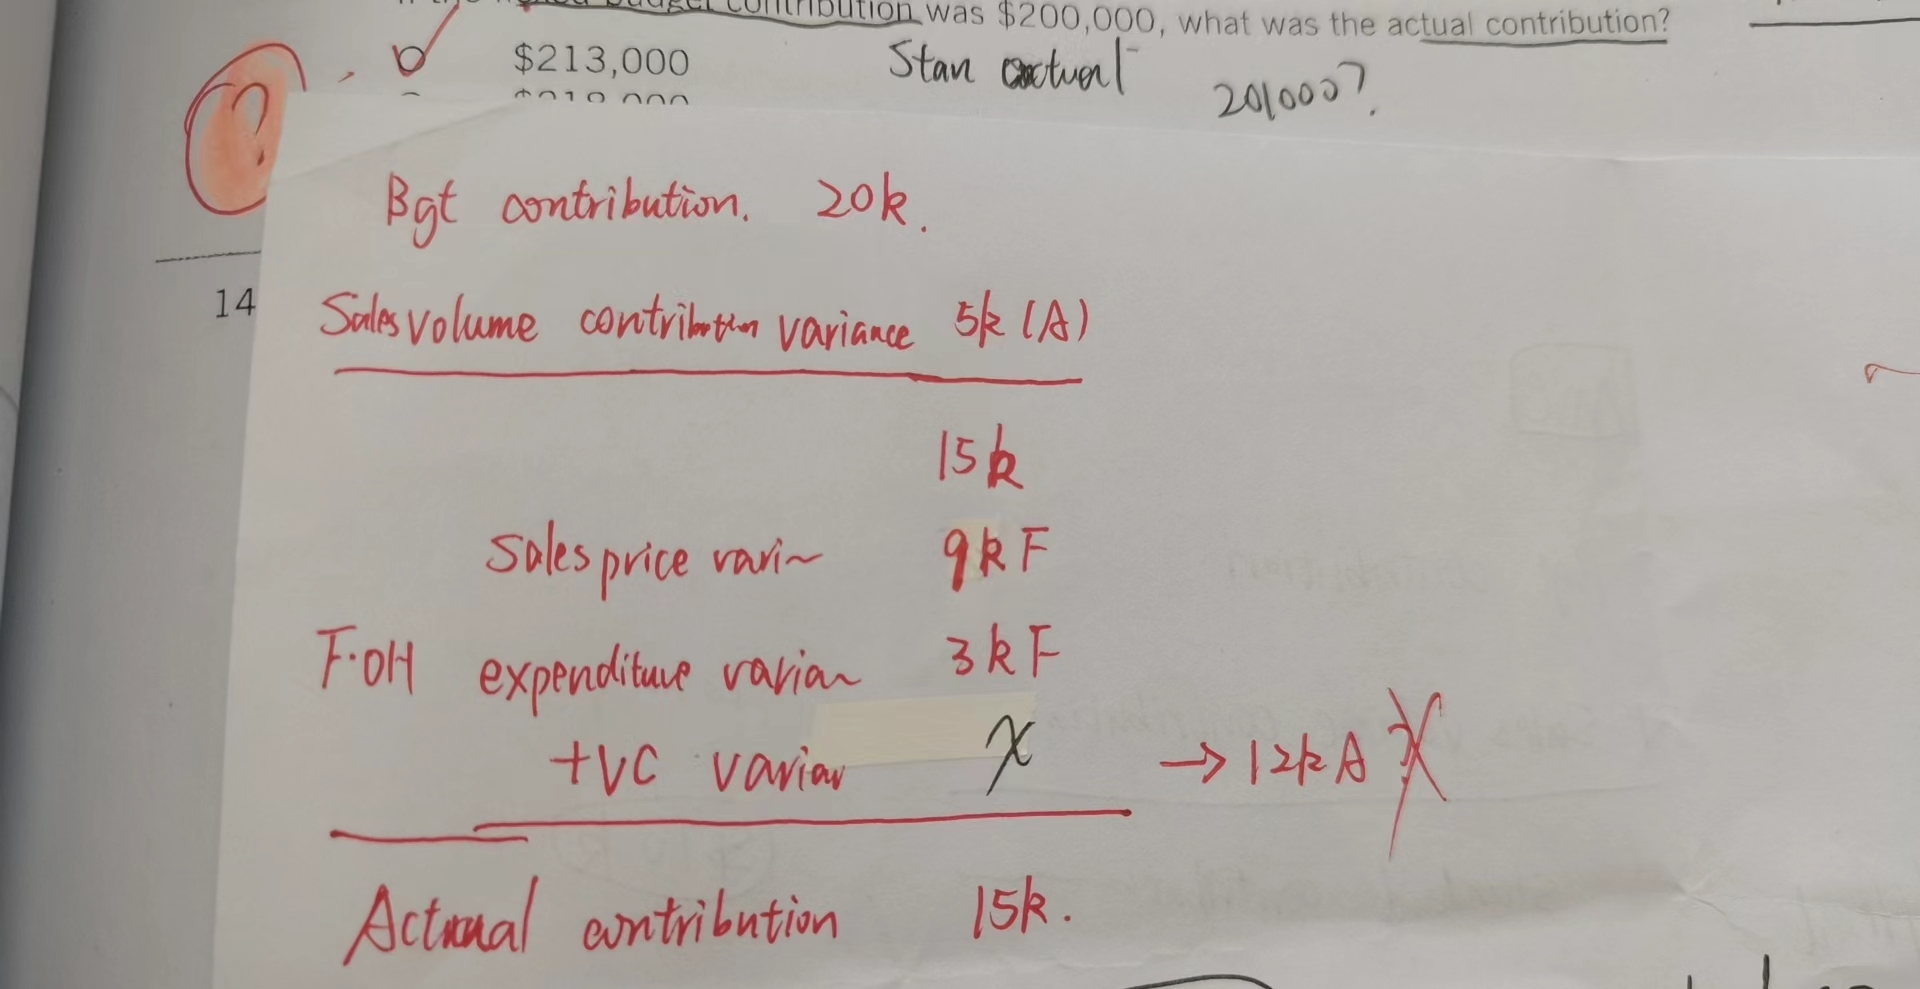 contribution was $200,000, what was the actual contribution?
$213,000
Stan actual
201000?
?
Bgt contribution. 20k.
14
Sales volume contribution variance 5k (A)
15k
Sales price vari~
9k F
F.OH expenditure varian
3k F
+VC varian X → 12k A
Actual contribution 15k.